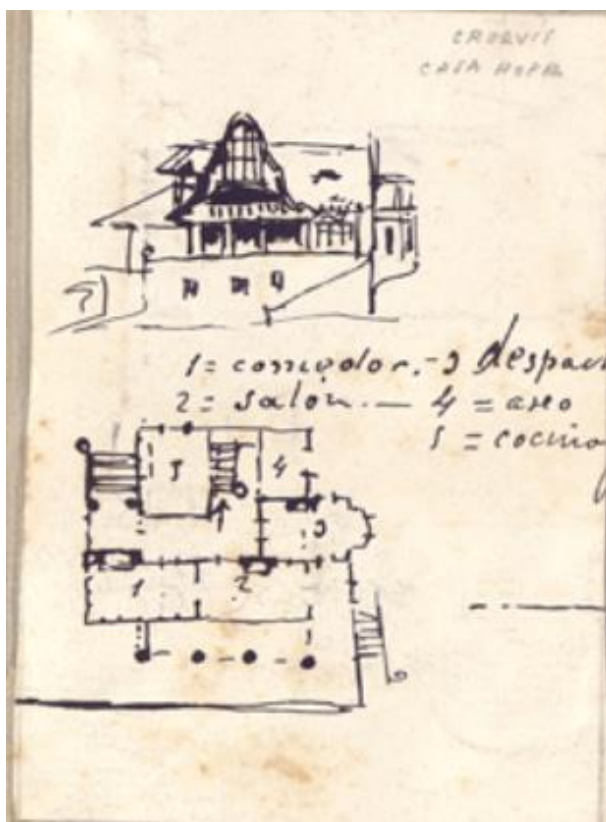 CROQUIS
CASA
1 = comedor. - 3 despac
2 = salón. — 4 = aseo
5 = cocina
5
4
3
1
2